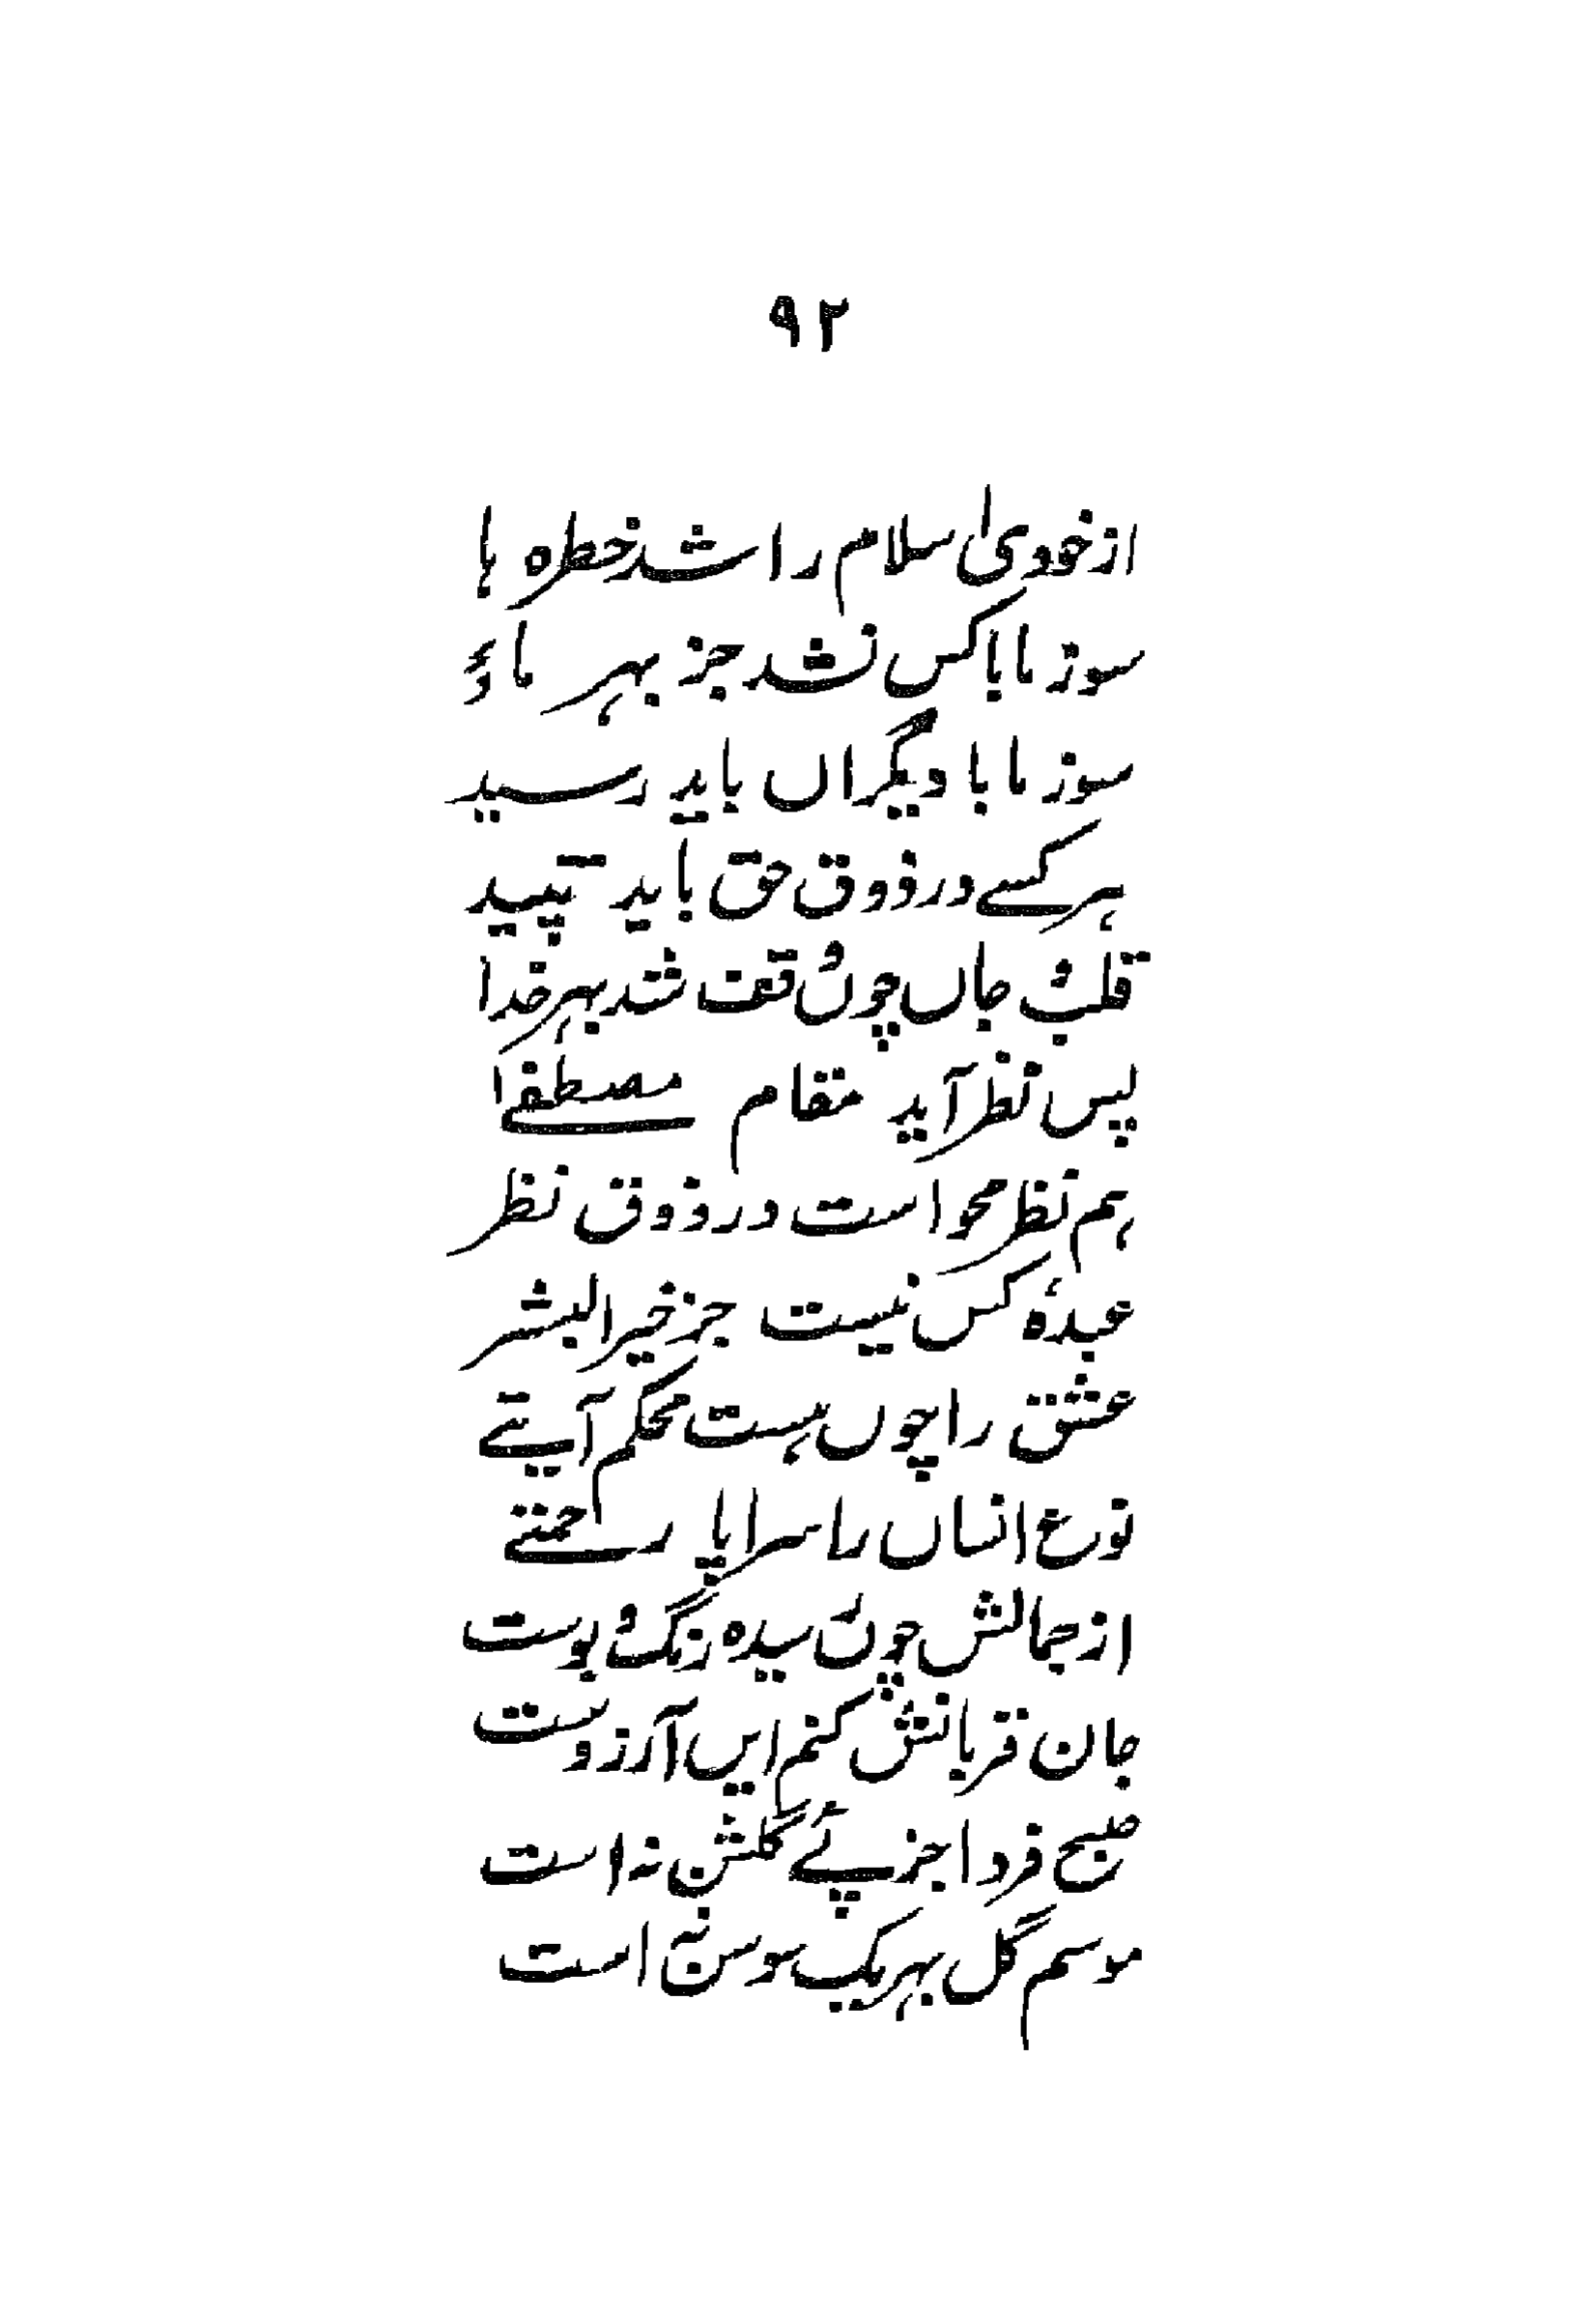 ۹۲
از خودی اسلام را شد خطره ہا
سوز ما با کس نشد جز بہر ماؤ
سوز ما با دیگراں باید رسید
ہر کسے در ذوق حق باید تپید
قلب و جاں چوں وقف شد بہر خدا
پس نظر آید مقام مصطفےٰ
ہم نظر محو است در ذوق نظر
عبدہٗ کس نیست جز خیر البشر
عشق را چوں ہست محکم آیتے
نوع انساں را سراپا رحمتے
از جمالش چوں رسیده رنگ و بوست
جان قربانش کنم ایں آرزوست
صبح فردا جز پئے گلشن نہ است
موسم گل بہر یک سوسن نہ است